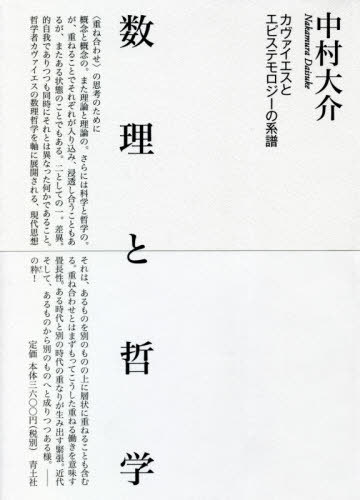 中村大介
Nakamura Daisuke
カヴァイエスと
エピステモロジーの系譜
数理と哲学
〈重ね合わせ〉の思考のために
概念と概念の。また理論と理論の。さらには科学と哲学の。それは、あるものを別のものの上に層状に重ねることも含む
が、重ねることでそれぞれが入り込み、浸透し合うこともある。重ね合わせとはまずもってこうした重ねる働きを意味す
るが、またある状態のことでもある。二としての一。差異。畳長性。ある時代と別の時代の重なりが生み出す緊張。近代
的自我でありつつも同時にそれとは異なった何かであること。そして、あるものから別のものへと成りつつある様。――
哲学者カヴァイエスの数理哲学を軸に展開される、現代思想の粋！
定価 本体三六〇〇円(税別) 青土社